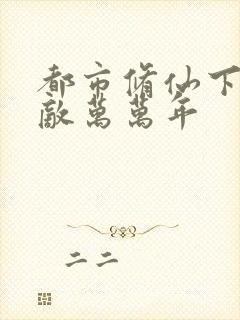 都市脩仙下
敵萬萬年
二二